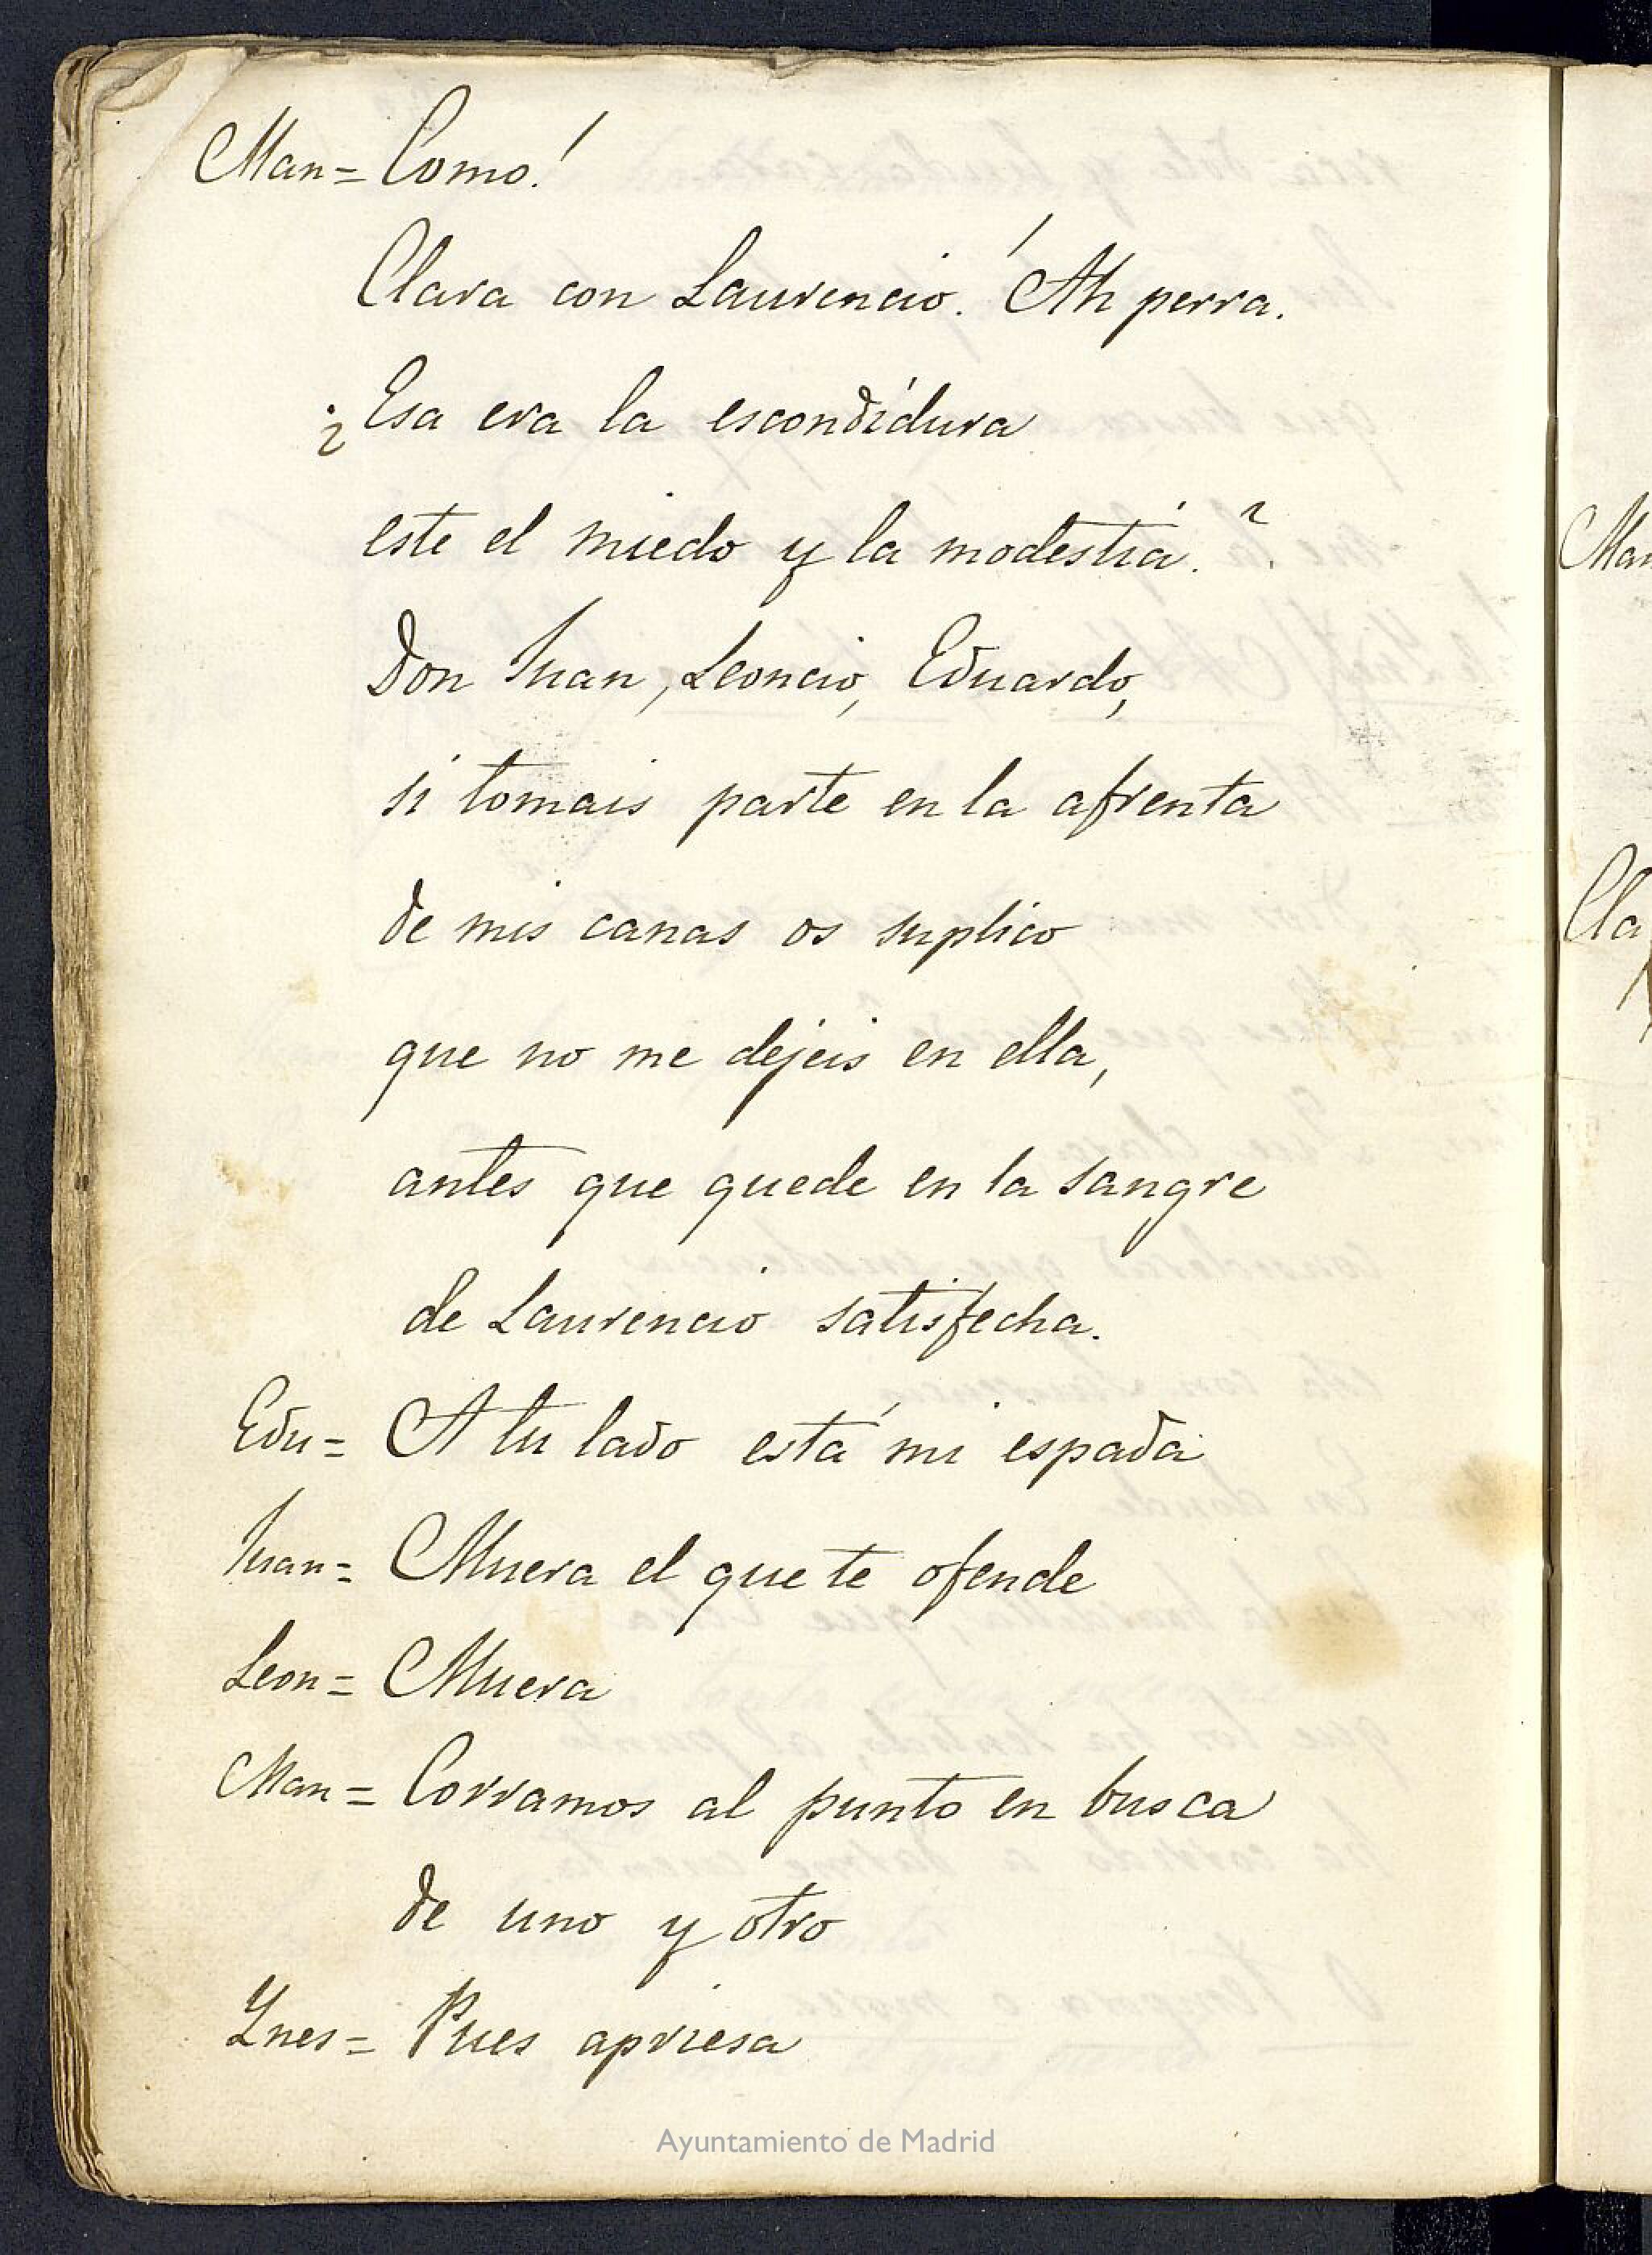 Man = Como!
Clara con Laurencio! Ah perra.
¿Esa era la escondidura
este el miedo y la modestia.?
Don Juan, Leoncio, Eduardo,
si tomais parte en la afrenta
de mis canas os suplico
que no me dejeis en ella,
antes que quede en la sangre
de Laurencio satisfecha.
Edu = A tu lado está mi espada
Juan = Muera el que te ofende
Leon = Muera
Man = Corramos al punto en busca
de uno y otro
Ynes = Pues apriesa
Man
Cla
Ayuntamiento de Madrid